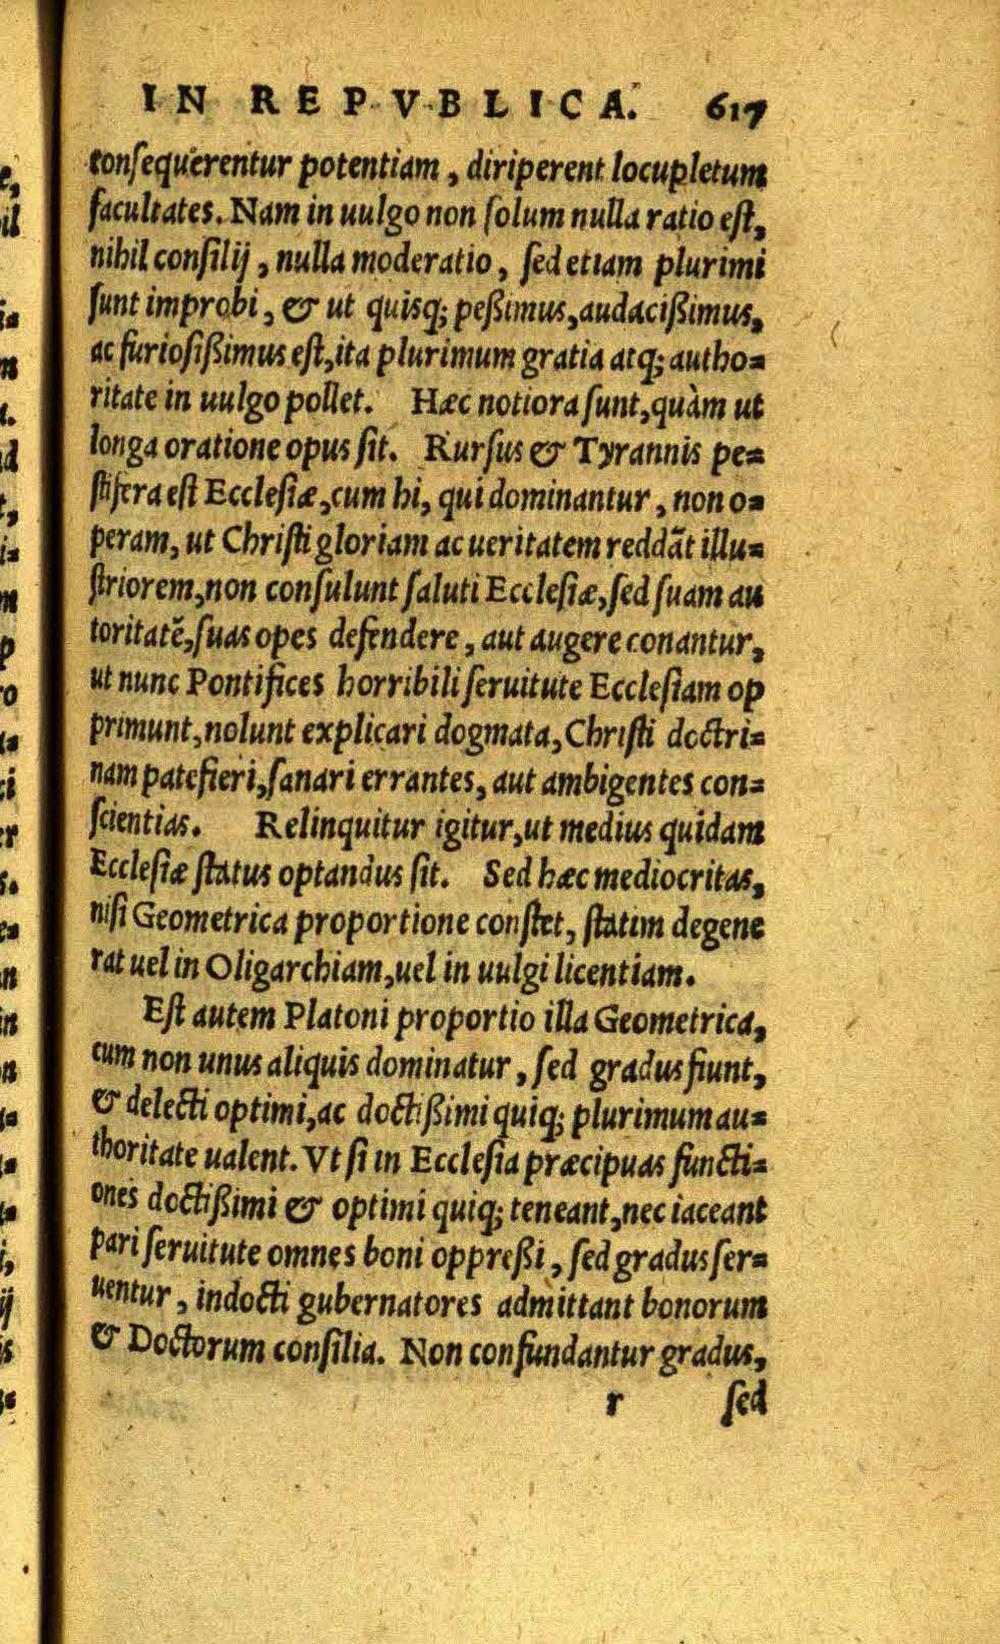 IN REPVBLICA. 617
consequerentur potentiam, diriperent locupletum
facultates. Nam in uulgo non solum nulla ratio est,
nihil consilij, nulla moderatio, sed etiam plurimi
sunt improbi, & ut quisq; peßimus, audacißimus,
ac furiosißimus est, ita plurimum gratia atq; autho=
ritate in uulgo pollet. Hæc notiora sunt, quàm ut
longa oratione opus sit. Rursus & Tyrannis pe=
stifera est Ecclesiæ, cum hi, qui dominantur, non o=
peram, ut Christi gloriam ac ueritatem reddãt illu=
striorem, non consulunt saluti Ecclesiæ, sed suam au
toritatẽ, suas opes defendere, aut augere conantur,
ut nunc Pontifices horribili seruitute Ecclesiam op
primunt, nolunt explicari dogmata, Christi doctri=
nam patefieri, sanari errantes, aut ambigentes con=
scientias. Relinquitur igitur, ut medius quidam
Ecclesiæ status optandus sit. Sed hæc mediocritas,
nisi Geometrica proportione constet, statim degene
rat uel in Oligarchiam, uel in uulgi licentiam.
Est autem Platoni proportio illa Geometrica,
cum non unus aliquis dominatur, sed gradus fiunt,
& delecti optimi, ac doctißimi quiq; plurimum au=
thoritate ualent. Vt si in Ecclesia præcipuas functi=
ones doctißimi & optimi quiq; teneant, nec iaceant
pari seruitute omnes boni oppreßi, sed gradus ser=
uentur, indocti gubernatores admittant bonorum
& Doctorum consilia. Non confundantur gradus,
r sed